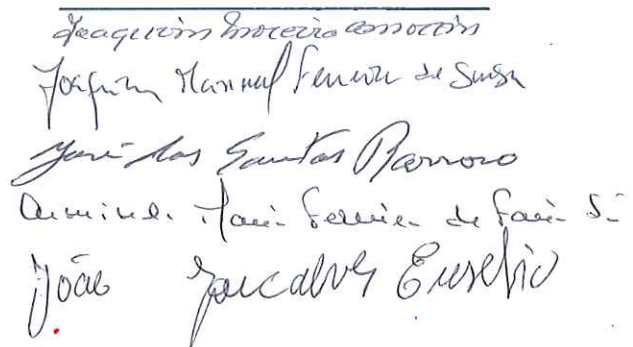 Joaquim Moreira Amorim
Joaquim Manuel Ferreira de Sousa
José dos Santos Barroso
Maria Ferreira de Faria Sá
João Goncalves Eusebio